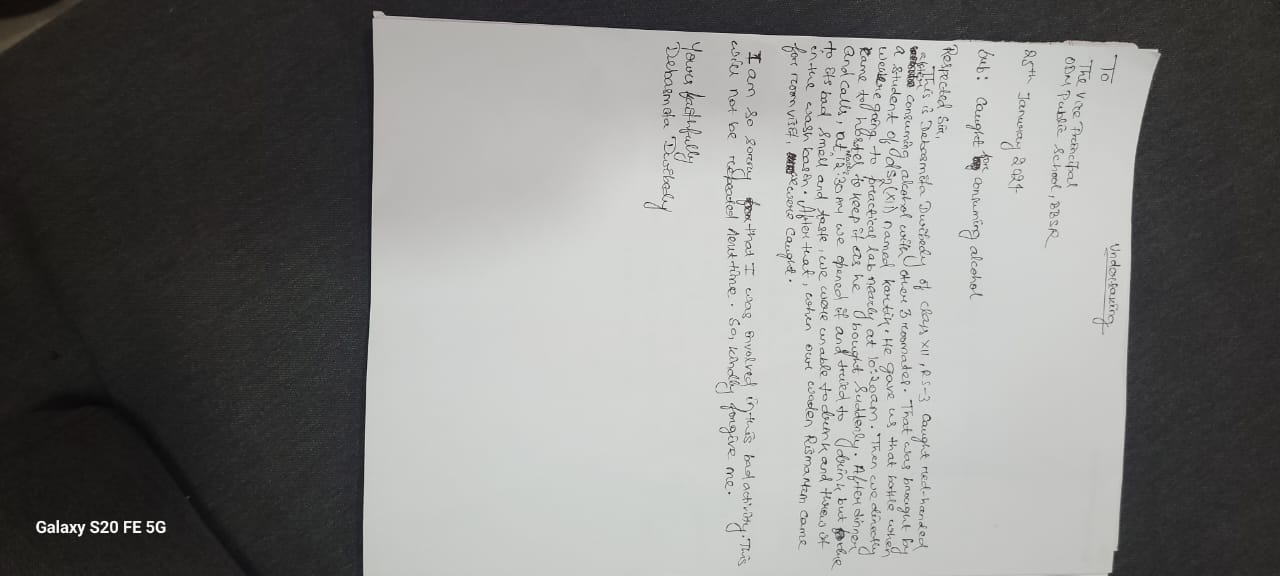 Undertaking
To
The Vice Principal
ODM Public School, BBSR
25th January 2024
Sub: Caught for consuming alcohol
Respected Sir,
This is Debasmita Dwibedy of class XII, RS-3 caught red-handed
consuming alcohol with other 3 roommates. That was brought by
a student of (XII) named kartik. He gave us that bottle when
we were going to practical lab nearly at 10:20am. Then we directly
came to hostel to keep it as he bought suddenly. After dinner
and calls, at 12:30 AM we opened it and tried to drink but
to its bad smell and taste, we were unable to drink and throw it
in the wash basin. After that, when our warden came
for room visit, we were caught.
I am so sorry that I was involved in this bad activity. This
will not be repeated next time. So, kindly forgive me.
Yours faithfully
Debasmita Dwibedy
Galaxy S20 FE 5G